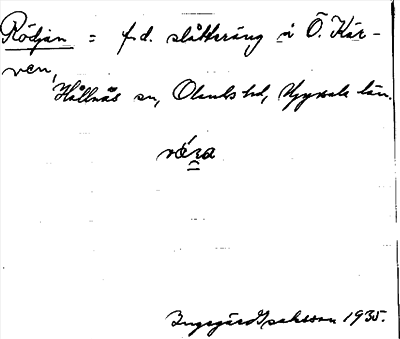 Rödjan = f.d. slåtteräng i Ö. Kär-
ven,
Hållnäs sn, Olands hd, Uppsala län.
röra
Ingegärd Isaksson 1935.